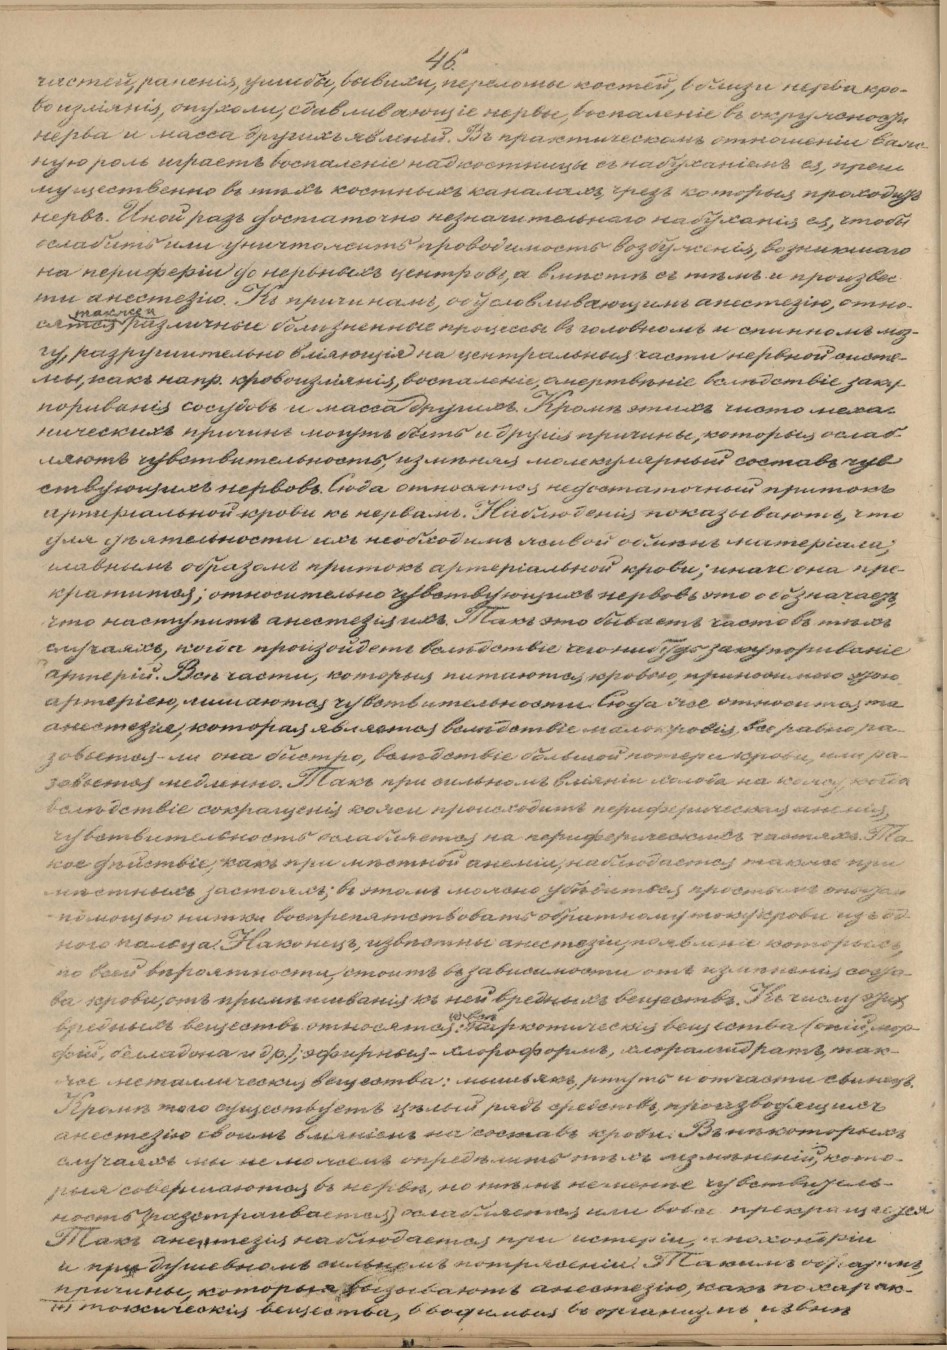 46.
частей, раненія, ушибы, вывихи, переломы костей, вблизи нерва кро-
воизліянія, опухоли, сдавливающіе нервы, воспаленіе въ окружности
нерва и масса другихъ явленій. Въ практическомъ отношеніи важ-
ную роль играетъ воспаленіе надкостницы съ набуханіемъ ея, преи
мущественно въ тѣхъ костныхъ каналахъ, чрезъ которыя проходитъ
нервъ. Иной разъ достаточно незначительнаго набуханія ея, чтобы
ослабить или уничтожить проводимость возбужденія, возникшаго
на периферіи до нервныхъ центровъ, а вмѣстѣ съ тѣмъ и произвес
ти анестезію. Къ причинамъ, обусловливающимъ анестезію, отно-
также
сятся различныи болизненные процессы въ головномъ и спинномъ моз-
гу, разрушительно вліяющія на центральныя части нервной систе-
мы, какъ напр. кровоизліянія, воспаленіе, омертвѣніе вслѣдствіе заку-
пориванія сосудовъ и масса другихъ. Кромѣ этихъ чисто меха-
ническихъ причинъ могутъ быть и другія причины, которыя ослаб-
ляютъ чувствительность, измѣняя молекулярный составъ чув
ствующихъ нервовъ. Сюда относятся недостаточный притокъ
артеріальной крови къ нервамъ. Наблюденія показываютъ, что
для дѣятельности ихъ необходимъ живой обмѣнъ матеріала;
главнымъ образомъ притокъ артеріальной крови; иначе она пре-
кратится; относительно чувствующихъ нервовъ это обозначаетъ,
что наступитъ анестезія ихъ. Такъ это бываетъ часто въ тѣхъ
случаяхъ, когда произойдетъ вслѣдствіе чего нибудь закупориваніе
артерій. Всѣ части, которыя питаются кровью, приносимого этою
артеріею, лишаются чувствительности. Сюда же относится та
анестезія, которая является вслѣдствіе малокровія, все равно ра-
зовьется-ли она быстро, вслѣдствіе большой потери крови, или ра-
зовьется медленно. Такъ при сильномъ вліяніи холода на кожу, когда
вслѣдствіе сокращенія кожи происходитъ периферическая анемія,
чувствительность ослабляется на периферическихъ частяхъ. Та-
кое дѣйствіе, какъ при мѣстной анеміи, наблюдается также при
мѣстныхъ застояхъ; въ этомъ можно убѣдиться простымъ
помощью нитки воспрепятствовать обратному току крови изъ од-
ного пальца. Наконецъ, извѣстны анестезіи, появленіе которыхъ,
по всей вѣроятности, стоитъ въ зависимости отъ измѣненія соста-
ва крови, отъ примѣшиванія къ ней вредныхъ веществъ. Къ числу этихъ
вредныхъ веществъ относятся: наркотическія вещества (опій, мор-
фій, белладона и др.); эфирныя - хлороформъ, хлоралгидратъ, так-
же металлическія вещества: мышьякъ, ртуть и отчасти свинецъ.
Кромѣ того существуетъ цѣлый рядъ средствъ, производящихъ
анестезію своимъ вліяніемъ на составъ крови. Въ нѣкоторыхъ
случаяхъ мы не можемъ опредѣлить тѣхъ измѣненій, кото-
рыя совершаются въ нервѣ, но тѣмъ неменѣе чувствитель-
ность разстраивается, ослабляется или вовсе прекращается
Такъ анестезія наблюдается при истеріи, ипохондріи
и при душевномъ сильномъ потрясеніи. Такимъ образомъ,
причины, которыя вызываютъ анестезію, какъ по харак-
токсическія вещества, вводимыя въ организмъ извнѣ